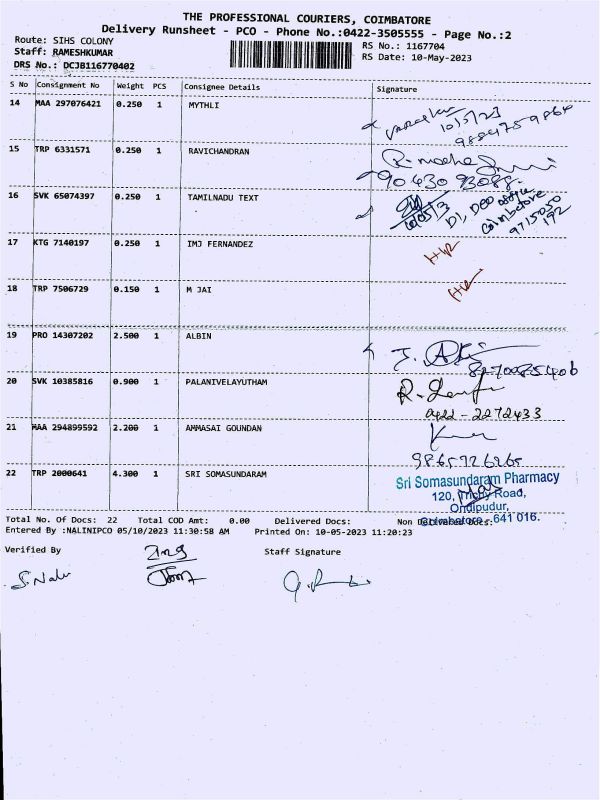 THE PROFESSIONAL COURIERS, COIMBATORE
Delivery Runsheet - PCO - Phone No.:0422-3505555 - Page No.:2
Route: SIHS COLONY
Staff: RAMESHKUMAR
DRS No.: DCJB116770402
RS No.: 1167704
RS Date: 10-May-2023
S No Consignment No Weight PCS Consignee Details Signature
14 MAA 297076421 0.250 1 MYTHLI
10/5/23
9884759864
15 TRP 6331571 0.250 1 RAVICHANDRAN
90430 93088
16 SVK 65074397 0.250 1 TAMILNADU TEXT
Coimbatore
9715030
192
17 KTG 7140197 0.250 1 IMJ FERNANDEZ
18 TRP 7506729 0.150 1 M JAI
19 PRO 14307202 2.500 1 ALBIN
20 SVK 10385816 0.900 1 PALANIVELAYUTHAM
0422-2272433
21 MAA 294899592 2.200 1 AMMASAI GOUNDAN
9865926265
22 TRP 2000641 4.300 1 SRI SOMASUNDARAM
Sri Somasundaram Pharmacy
120, Trichy Road,
Ondipudur,
Coimbatore - 641 016.
Total No. Of Docs: 22 Total COD Amt: 0.00 Delivered Docs: Non Delivered Docs:
Entered By :NALINIPCO 05/10/2023 11:30:58 AM Printed On: 10-05-2023 11:20:23
Verified By Staff Signature